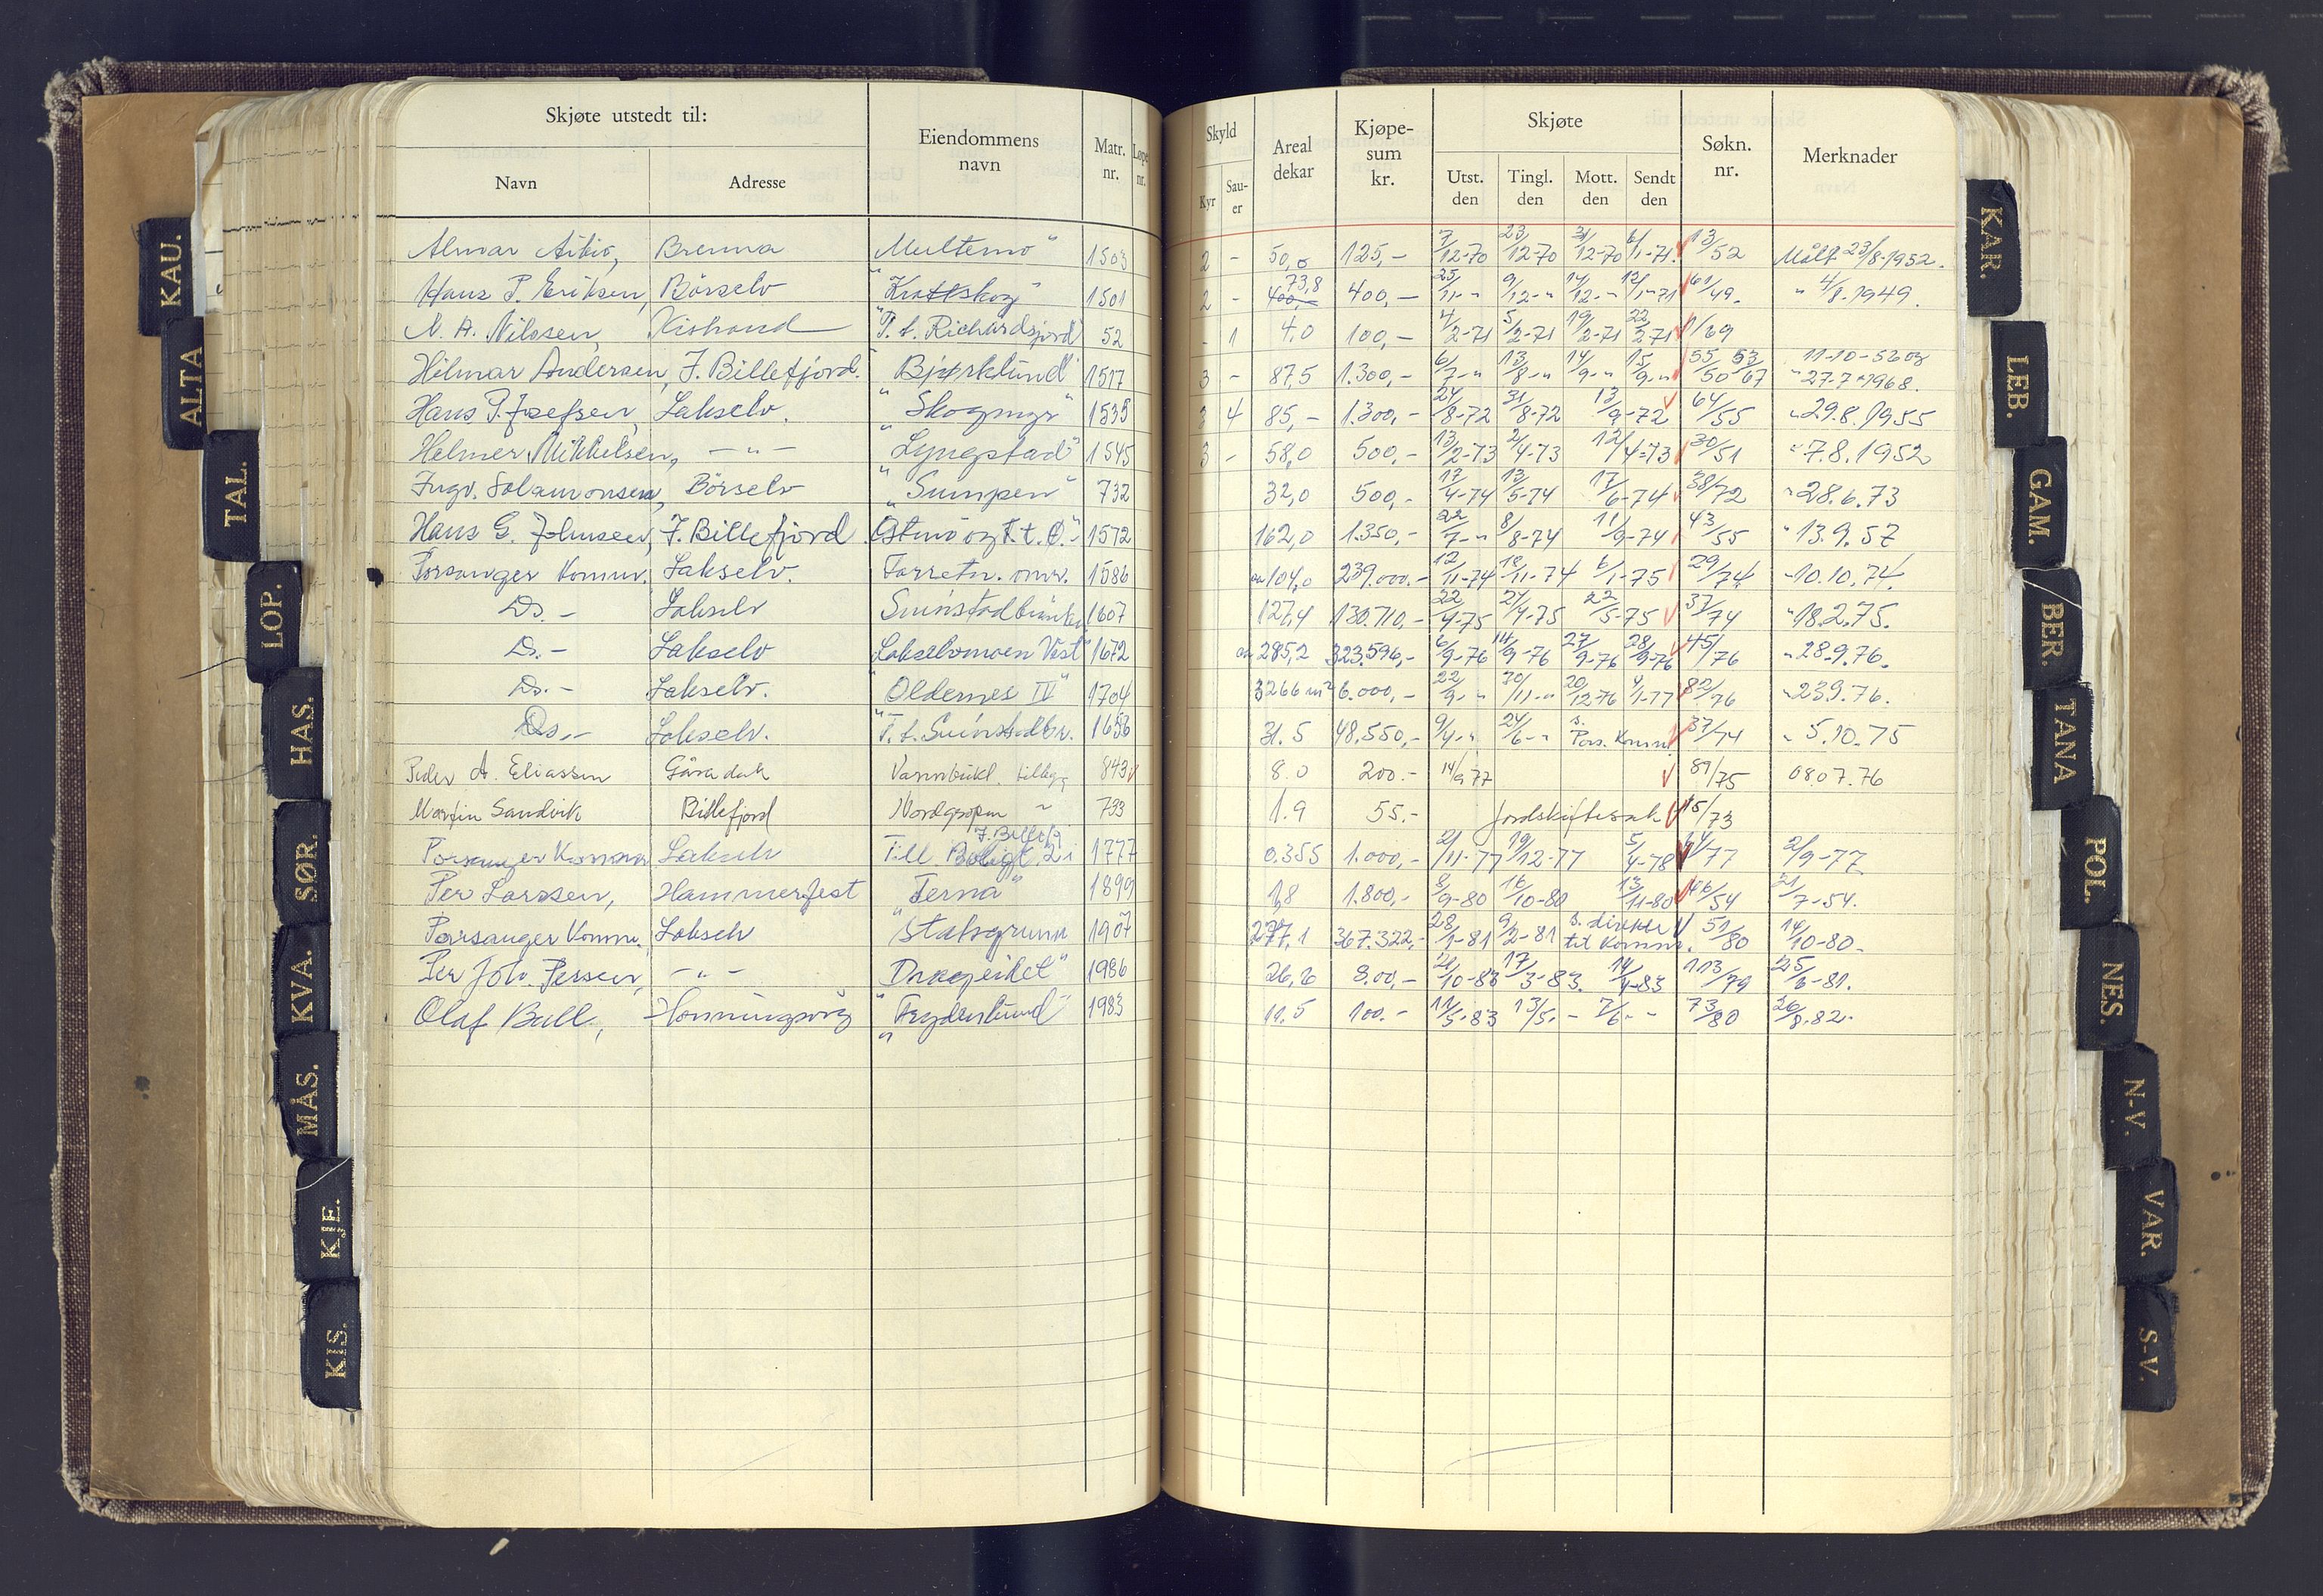 Skjøte utstedt til:
Navn
Adresse
Eiendommens navn
Matr. nr.
Løpe nr.
Skyld
Kyr
Sau-er
Areal dekar
Kjøpe-sum kr.
Skjøte
Utst. den
Tingl. den
Mott. den
Sendt den
Søkn. nr.
Merknader
Almar Aibio, Brenna "Multemo" 1503 2 - 50,0 125,- 7/12-70 23/12-70 31/12-70 6/1-71 13/52 Målt 23/8-1952.
Hans P. Eriksen, Børselv "Krattskog" 1501 2 - 73,8 400,- 25/11-" 9/12-" 14/12-" 12/1-71 61/49. " 4/8-1949.
N. A. Nilssen, Kistrand "T. t. Richardsjord" 52 - 1 4,0 100,- 4/2-71 5/2-71 19/2-71 22/2-71 1/69
Hilmar Andersen, I. Billefjord. "Bjørklund" 1517 3 - 87,5 1.300,- 6/7-" 13/8-" 14/9-" 15/9-" 55/50 53/67 11-10-52 og " 27.7-1968.
Hans P. Josefsen, Lakselv. "Skogmyr" 1535 3 4 85,- 1.300,- 24/8-72 31/8-72 13/9-72 64/55 " 29.8.1955
Helmer Mikkelsen, -"- "Lyngstad" 1545 3 - 58,0 500,- 13/2-73 2/4-73 12/4-73 30/51 " 7.8.1952
Ingv. Salamonsen, Børselv "Sumpen" 732 32,0 500,- 17/4-74 13/5-74 17/6-74 38/72 " 28.6.73
Hans G. Johnsen, I. Billefjord "Østmo og T. t. Ø." 1572 162,0 1.350,- 22/7-" 8/8-74 11/9-74 43/55 " 13.9.57
Porsanger komm. Lakselv. Forretn. omr. 1586 ca 104,0 239.000,- 12/11-74 18/11-74 6/1-75 29/74 " 10.10.74
Ds.- Lakselv 1607 127,4 130.710,- 22/4-75 24/4-75 22/5-75 37/74 " 18.2.75.
Ds.- Lakselv "Lakselvmoen Vest" 1672 ca 285,2 323.596,- 6/9-76 14/9-76 27/9-76 28/9-76 45/76 " 28.9.76.
Ds.- Lakselv. "Oldernes IV" 1704 3266 m² 6.000,- 22/9-" 30/11-" 20/12-76 4/1-77 82/76 " 23.9.76.
Ds.- Lakselv. 1656 31.5 48.550,- 9/4-" 24/6-" s. Pors. Komm. 37/74 " 5.10.75
Peder A. Eliassen Gåradak Varmbukt. tillegg 843 8.0 200.- 14/9 77 81/75 08.07.76
Martin Sandvik Billefjord Nordgropen " 793 1.9 55.- Jordskiftesak 15/73
Porsanger Kommune Lakselv Till. Boligt. 2 i I. Billefj. 1777 0.355 1.000,- 2/11-77 19/12-77 5/4-78 44/77 2/9-77
Per Larssen, Hammerfest "Terna" 1899 1,8 1.800,- 8/9-80 16/10-80 13/11-80 46/54 21/7-54.
Porsanger Komm. Lakselv "Statsgrunn 1907 277,1 367.322,- 28/1-81 9/2-81 s. direkte til Komm. 51/80 14/10-80-
Per Joh. Persen, -"- Drageidet" 1986 26,6 800,- 21/10-83 17/3-83. 14/4-83 113/79 25/6-81.
Olaf Ball, Honningsvåg "Frydenlund" 1983 11.5 100.- 11/5-83 13/5- - 7/6- - 73/80 26/8.82.
KAU.
ALTA
TAL.
LOP.
HAS.
SØR.
KVA.
MÅS.
KJE.
KIS.
KAR.
LEB.
GAM.
BER.
TANA
POL.
NES.
N-V.
VAR.
S-V.